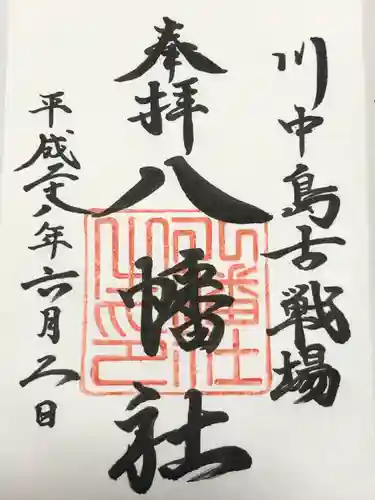 川中島古戦場
奉拝
八幡社
平成二十八年六月五日